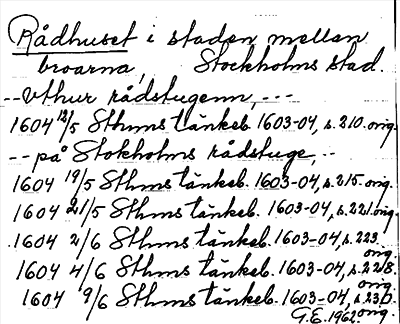 Rådhuset i staden mellan
broarna, Stockholms stad.
--vthur rådstugenn, ---
1604 12/5 Sthms tänkeb. 1603-04, s.210. orig.
-- på Stokholms rådstuge, --
1604 19/5 Sthms tänkeb. 1603-04, s.215. orig.
1604 21/5 Sthms tänkeb. 1603-04, s.221. orig.
1604 2/6 Sthms tänkeb. 1603-04, s.223. orig.
1604 4/6 Sthms tänkeb. 1603-04, s.228. orig.
1604 9/6 Sthms tänkeb. 1603-04, s.230. orig.
G.E. 1962.